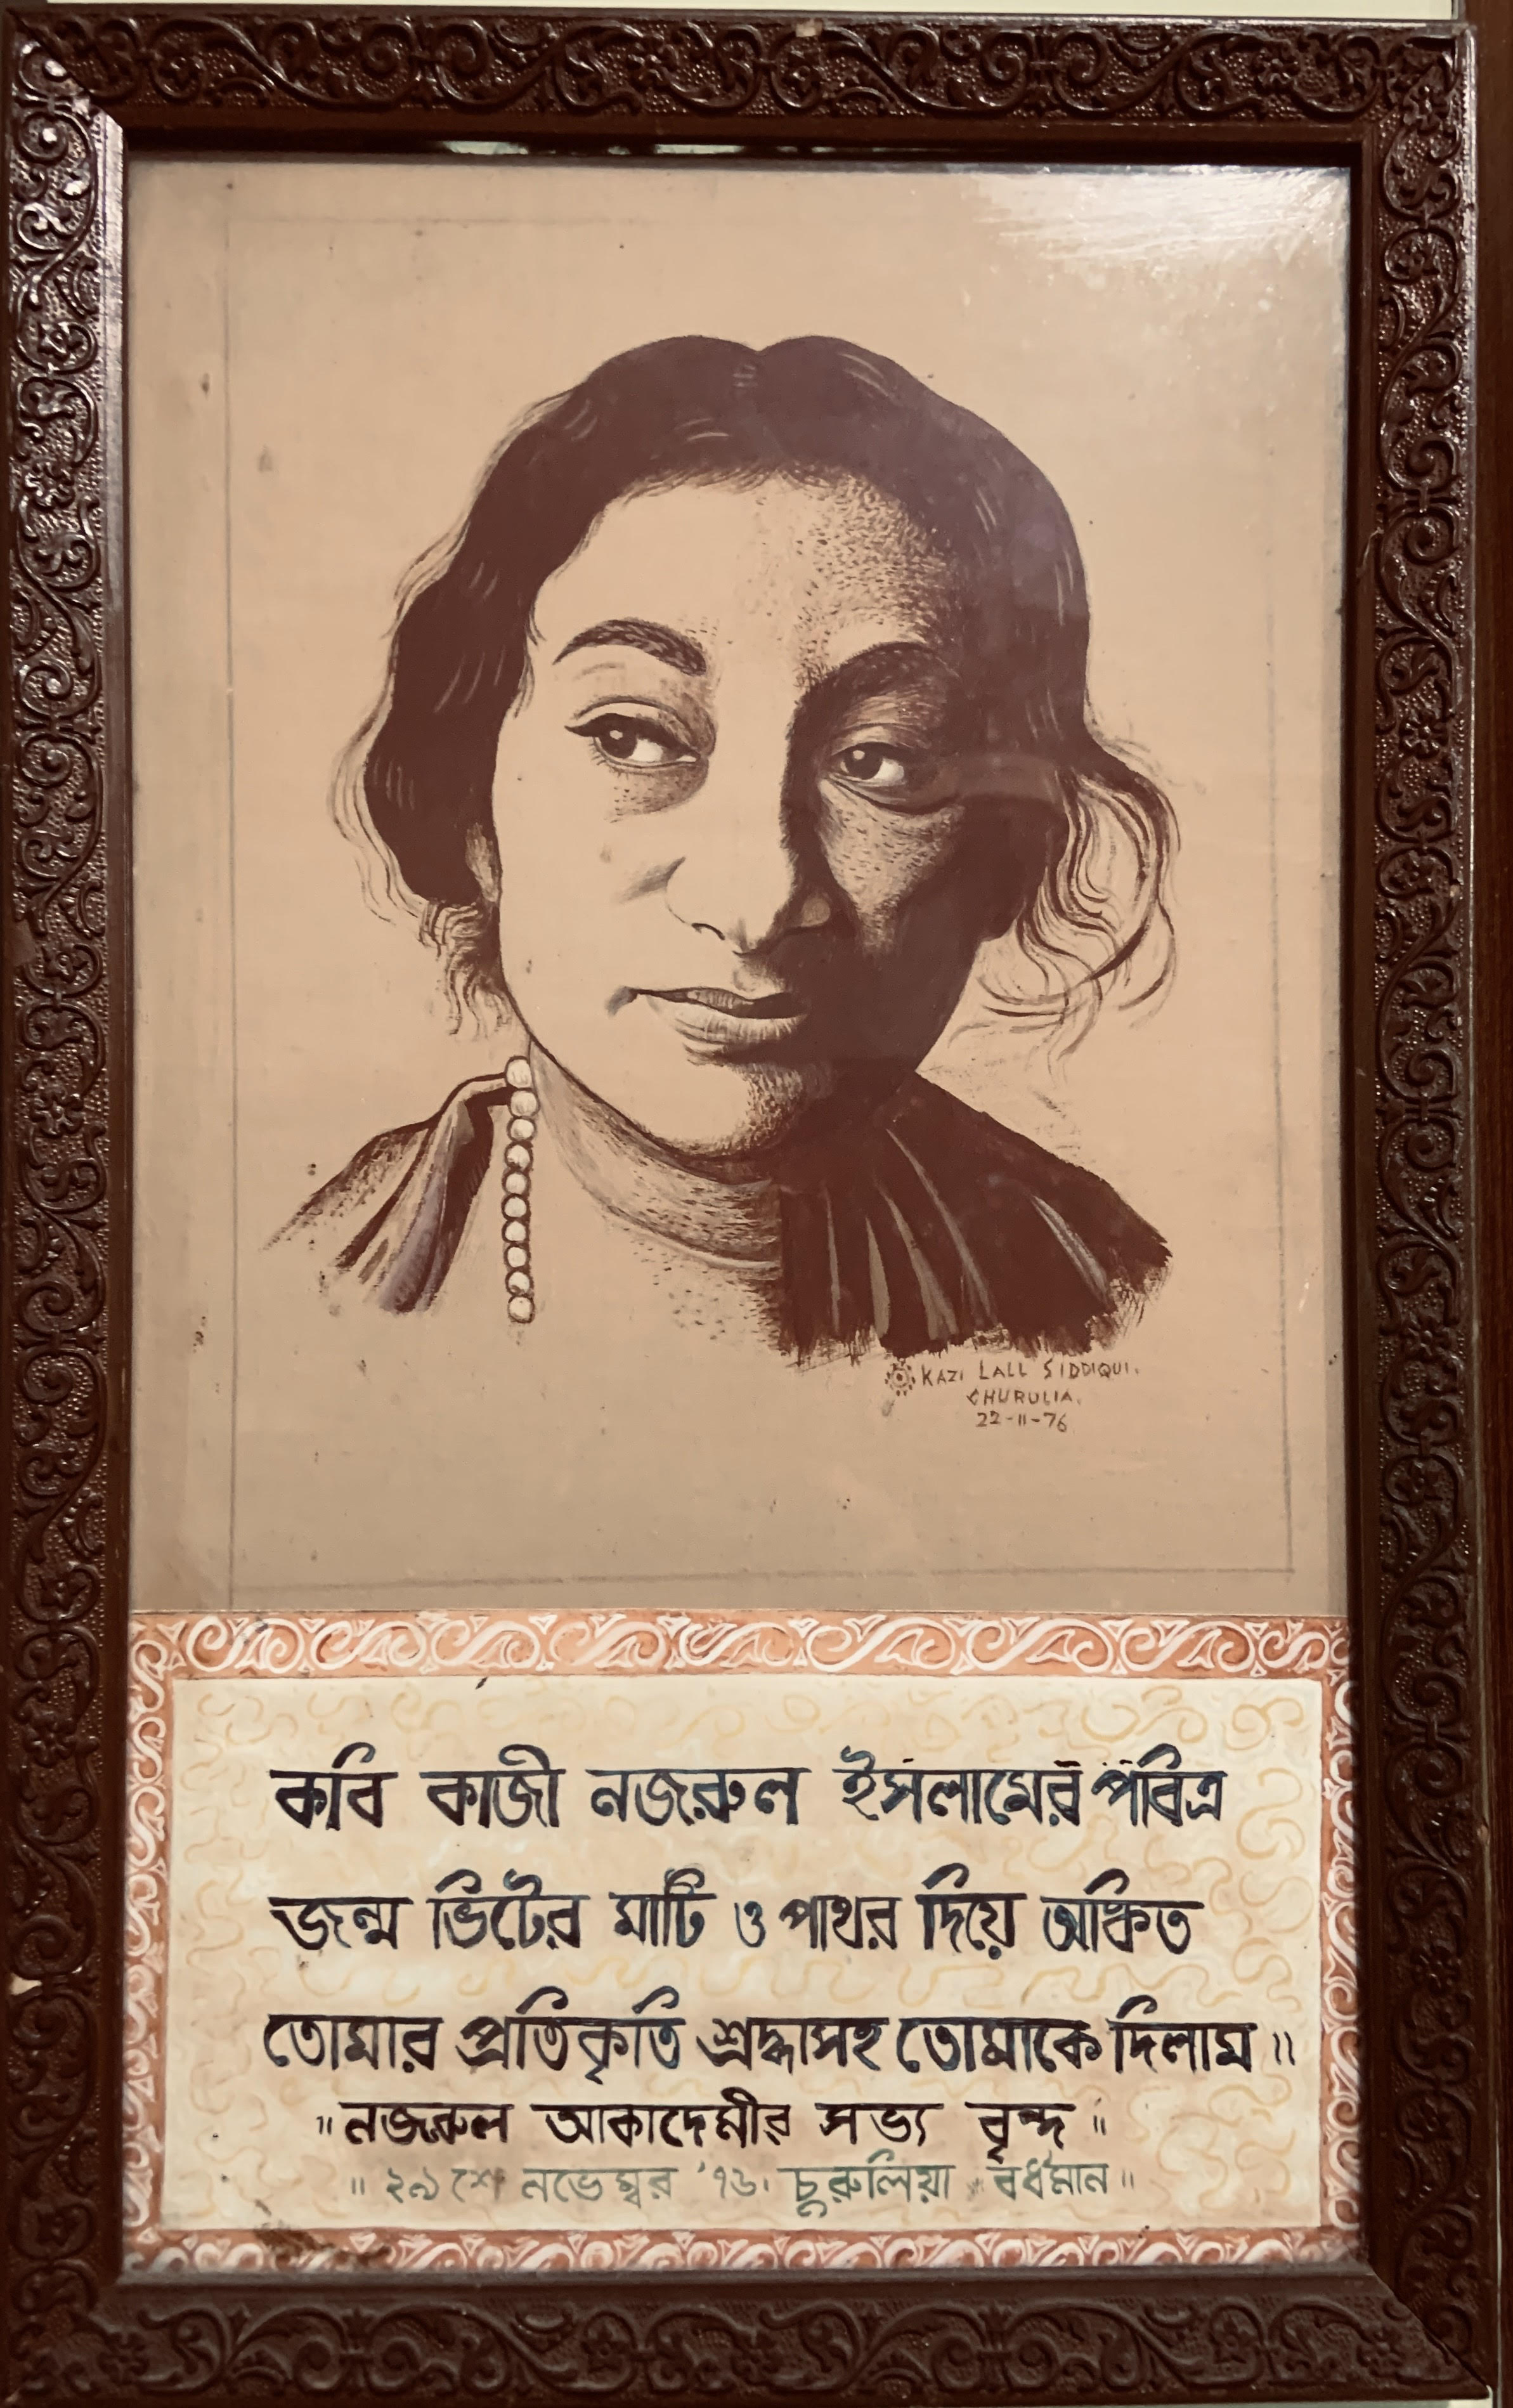 KAZI LALL SIDDIQUI.
CHURULIA.
22-11-76
কবি কাজী নজরুল ইসলামের পবিত্র
জন্ম ভিটের মাটি ও পাথর দিয়ে অঙ্কিত
তোমার প্রতিকৃতি শ্রদ্ধাসহ তোমাকে দিলাম॥
"নজরুল আকাদেমীর সভ্য বৃন্দ"
॥ ২৯শে নভেম্বর '৭৬। চুরুলিয়া বর্ধমান॥